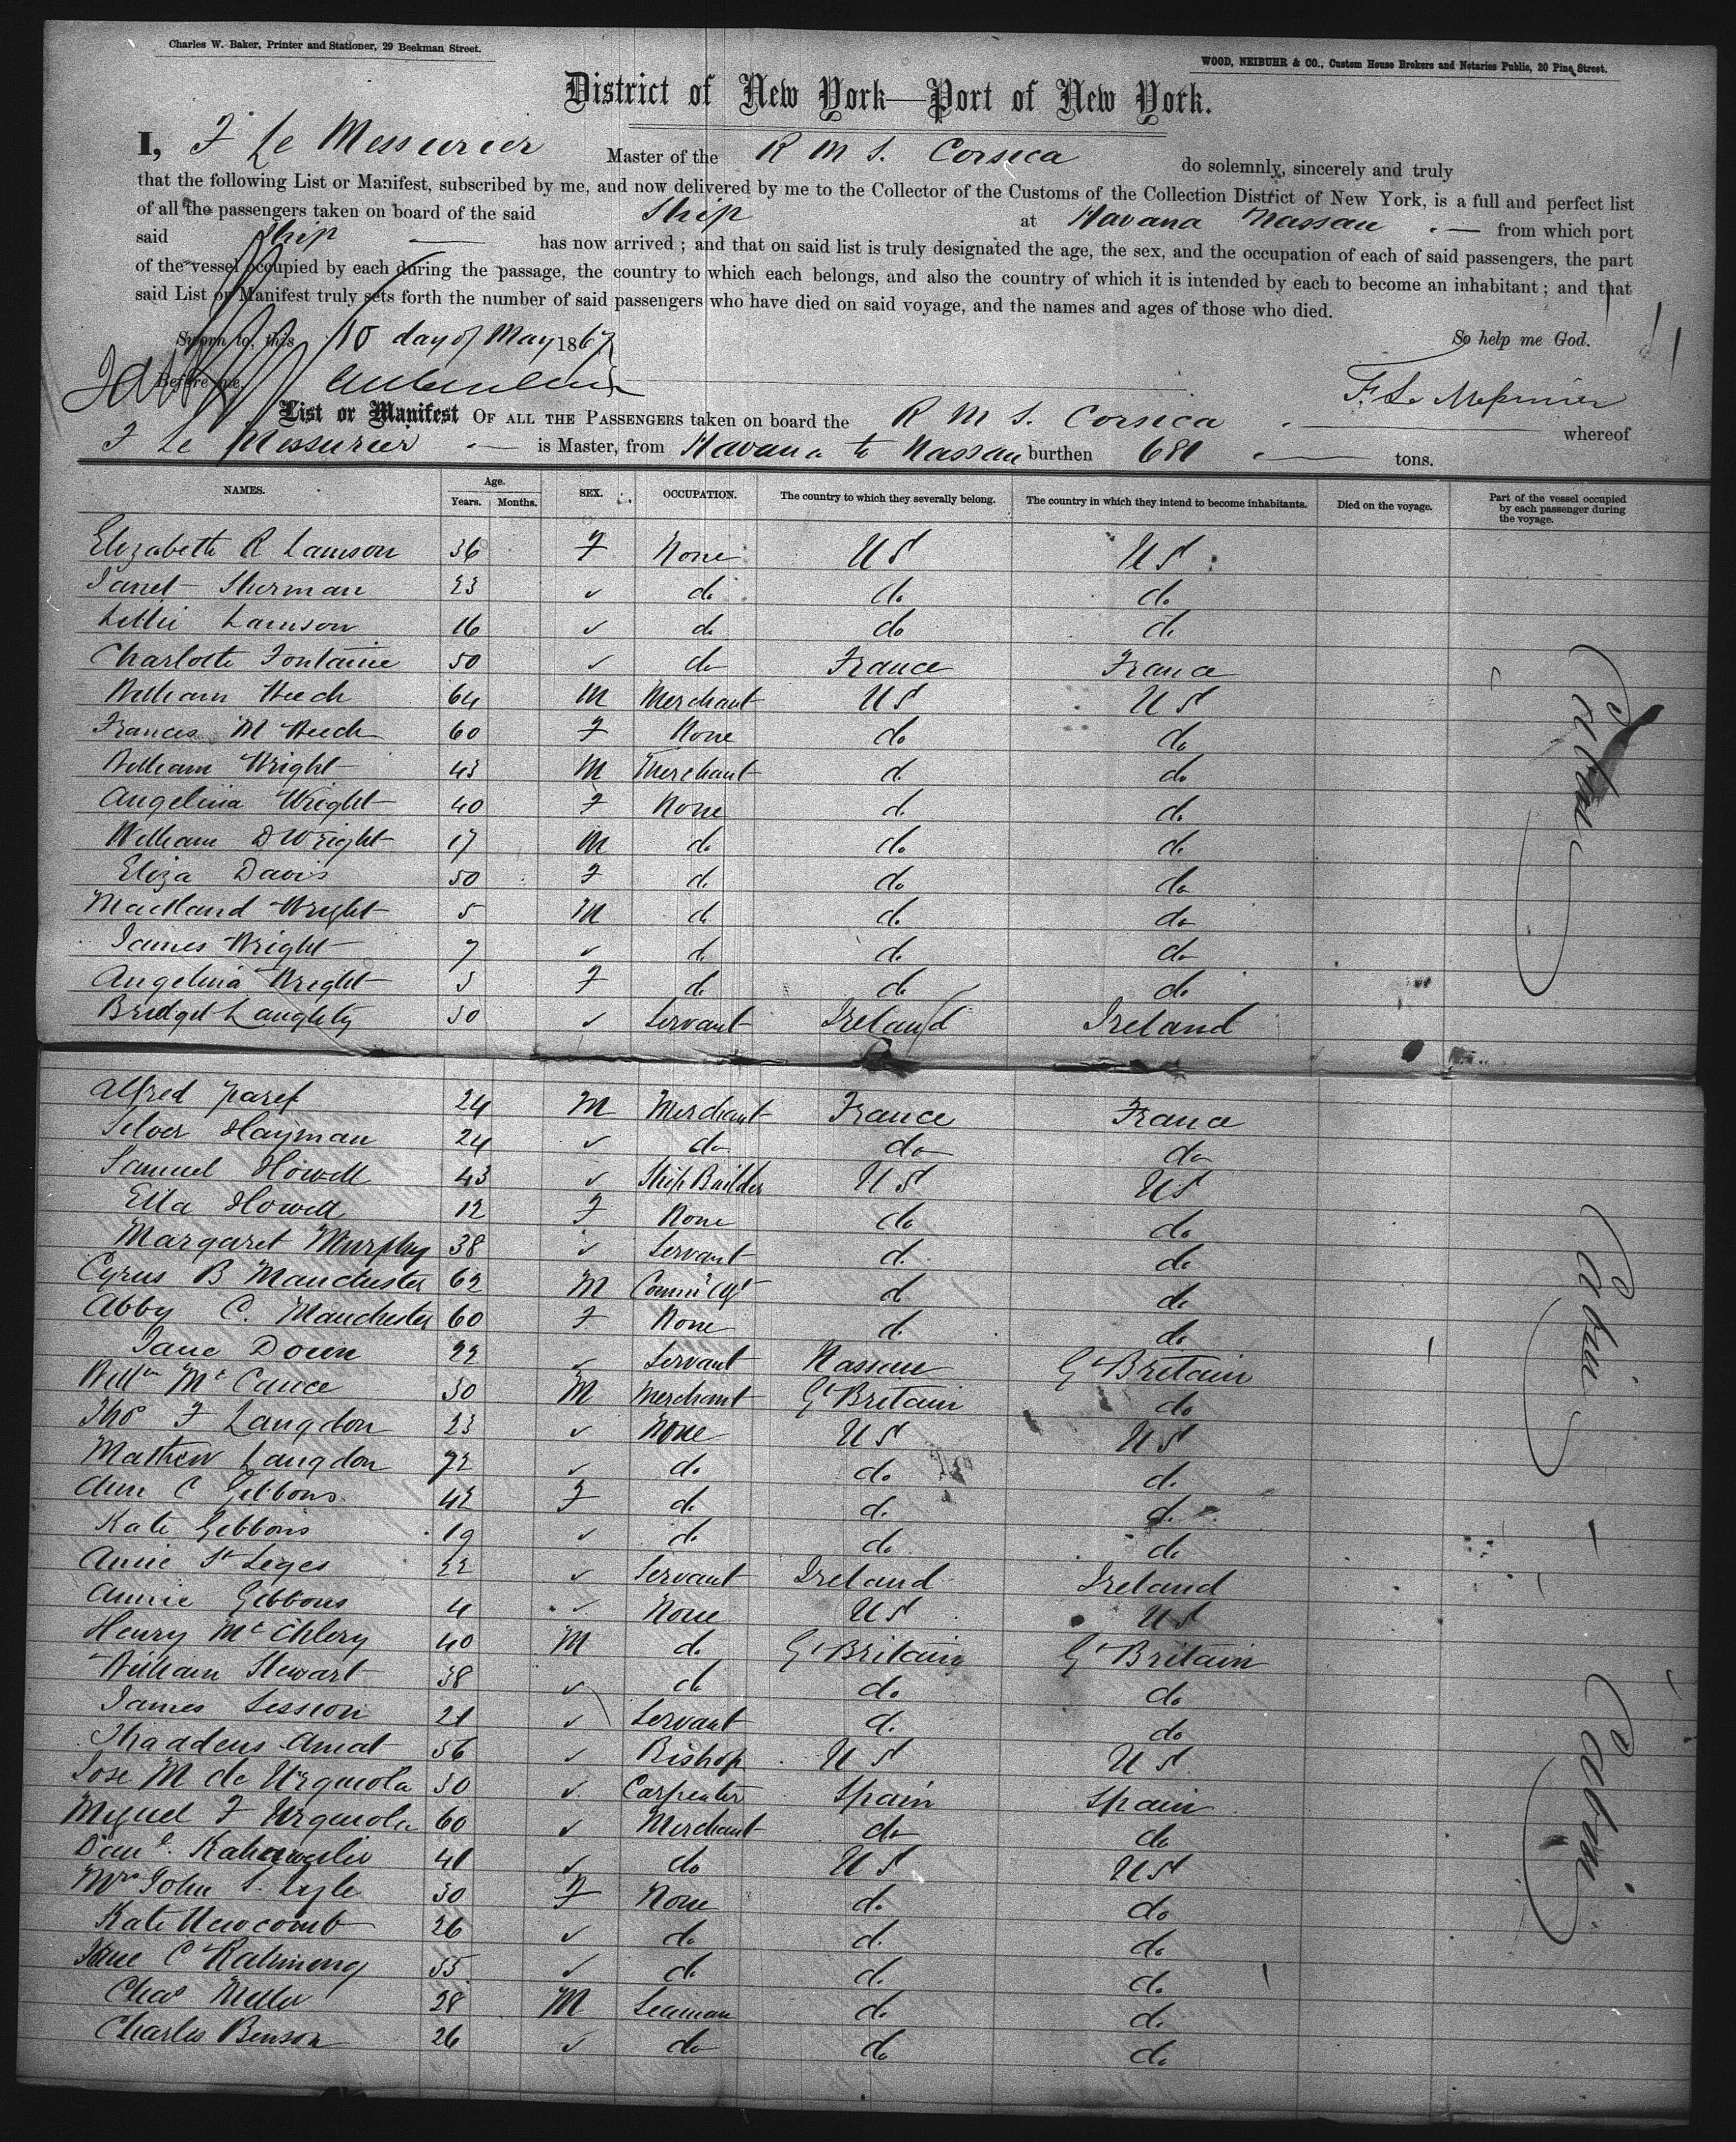 Charles W. Baker, Printer and Stationer, 29 Beekman Street.
WOOD, NEIBUHR & CO., Custom House Brokers and Notaries Public, 20 Pine Street.
District of New York—Port of New York.
I, F Le Messurier Master of the R M S. Corsica do solemnly, sincerely and truly
that the following List or Manifest, subscribed by me, and now delivered by me to the Collector of the Customs of the Collection District of New York, is a full and perfect list
of all the passengers taken on board of the said Ship at Havana Nassau from which port
said Ship has now arrived; and that on said list is truly designated the age, the sex, and the occupation of each of said passengers, the part
of the vessel occupied by each during the passage, the country to which each belongs, and also the country of which it is intended by each to become an inhabitant; and that
said List or Manifest truly sets forth the number of said passengers who have died on said voyage, and the names and ages of those who died.
Sworn to, this 10 day of May 1867 So help me God.
Before me,
F. Le Messurier
List or Manifest OF ALL THE PASSENGERS taken on board the R M S. Corsica whereof
F Le Messurier is Master, from Havana to Nassau burthen 681 tons.
NAMES. Age. Years. Months. SEX. OCCUPATION. The country to which they severally belong. The country in which they intend to become inhabitants. Died on the voyage. Part of the vessel occupied by each passenger during the voyage.
Elizabeth R Lamson 36 F None US US
Janet Sherman 23 ✓ do do do
Lillie Lamson 16 ✓ do do do
Charlotte Fontaine 50 ✓ do France France
William 64 M Merchant US US
Frances M 60 F None do do
William Wright 43 M Merchant do do
Angelina Wright 40 F None do do
William D Wright 17 M do do do
Eliza Davis 50 F do do do
Maitland Wright 5 M do do do
James Wright 7 ✓ do do do
Angelina Wright 3 F do do do
Bridget Laughty 30 ✓ Servant Ireland Ireland
Cabin
Alfred 24 M Merchant France France
Silver Hayman 24 ✓ do do do
Samuel Howell 43 ✓ Ship Builder US US
Ella Howell 12 F None do do
Margaret Murphy 38 ✓ Servant do do
Cyrus B Manchester 62 M do do
Abby C. Manchester 60 F None do do
Jane 22 ✓ Servant Nassau Gt Britain
Willm Mc Cance 30 M Merchant Gt Britain do
Thos F Langdon 23 ✓ None US US
Mathew Langdon 72 ✓ do do do
Ann C Gibbons 42 F do do do
Kate Gibbons 19 ✓ do do do
Annie St Leges 22 ✓ Servant Ireland Ireland
Annie Gibbons 4 ✓ None US US
Henry Mc Chlery 40 M do Gt Britain Gt Britain
William Stewart 38 ✓ do do do
James Session 21 ✓ Servant do do
Thaadeus Amat 56 ✓ Bishop US US
Jose M de Urquiola 30 ✓ Carpenter Spain Spain
Miguel F Urquiola 60 ✓ Merchant do do
Danl. 41 ✓ do US US
Mrs John S. Lyle 30 F None do do
Kate Newcomb 26 ✓ do do do
Jane C 55 ✓ do do do
Chas Miller 28 M Seaman do do
Charles Benson 26 ✓ do do do
Cabin
Cabin